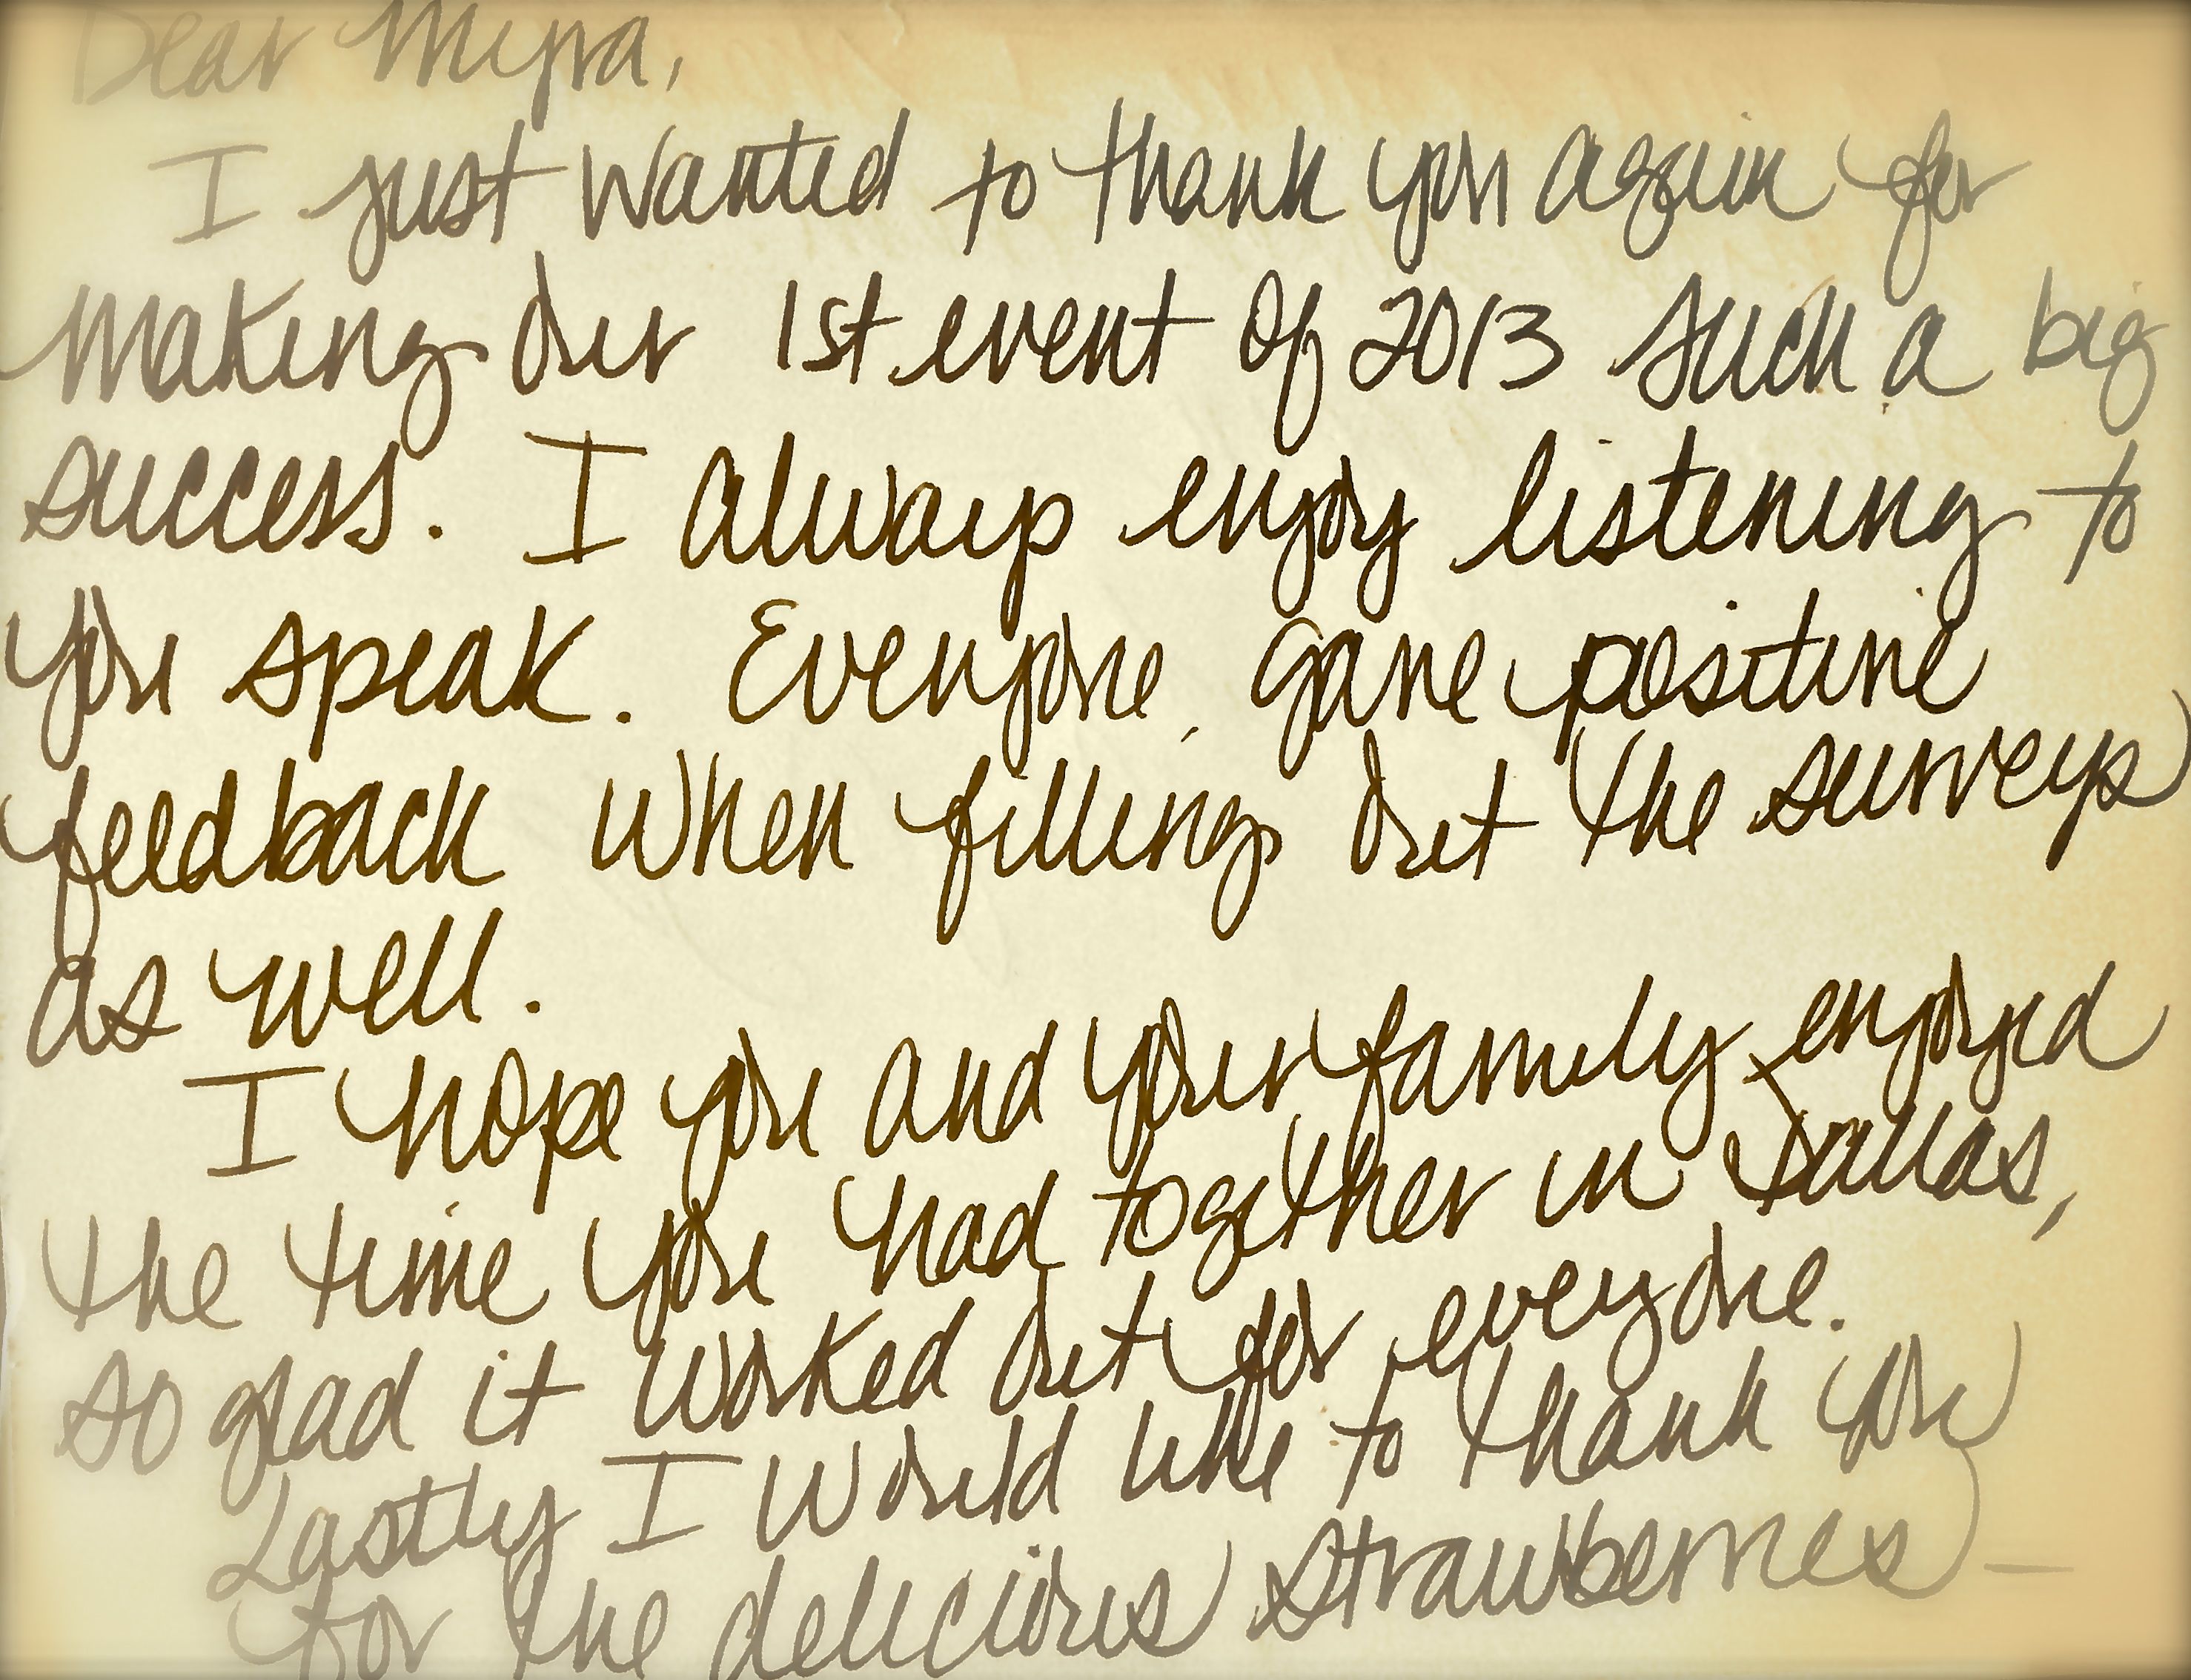 Dear Myra,
I just wanted to thank you again for
making our 1st event of 2013 such a big
success. I always enjoy listening to
you speak. Everyone gave positive
feedback when filling out the surveys
as well.
I hope you and your family enjoyed
the time you had together in Dallas,
so glad it worked out for everyone.
Lastly I would like to thank you
for the delicious strawberries —